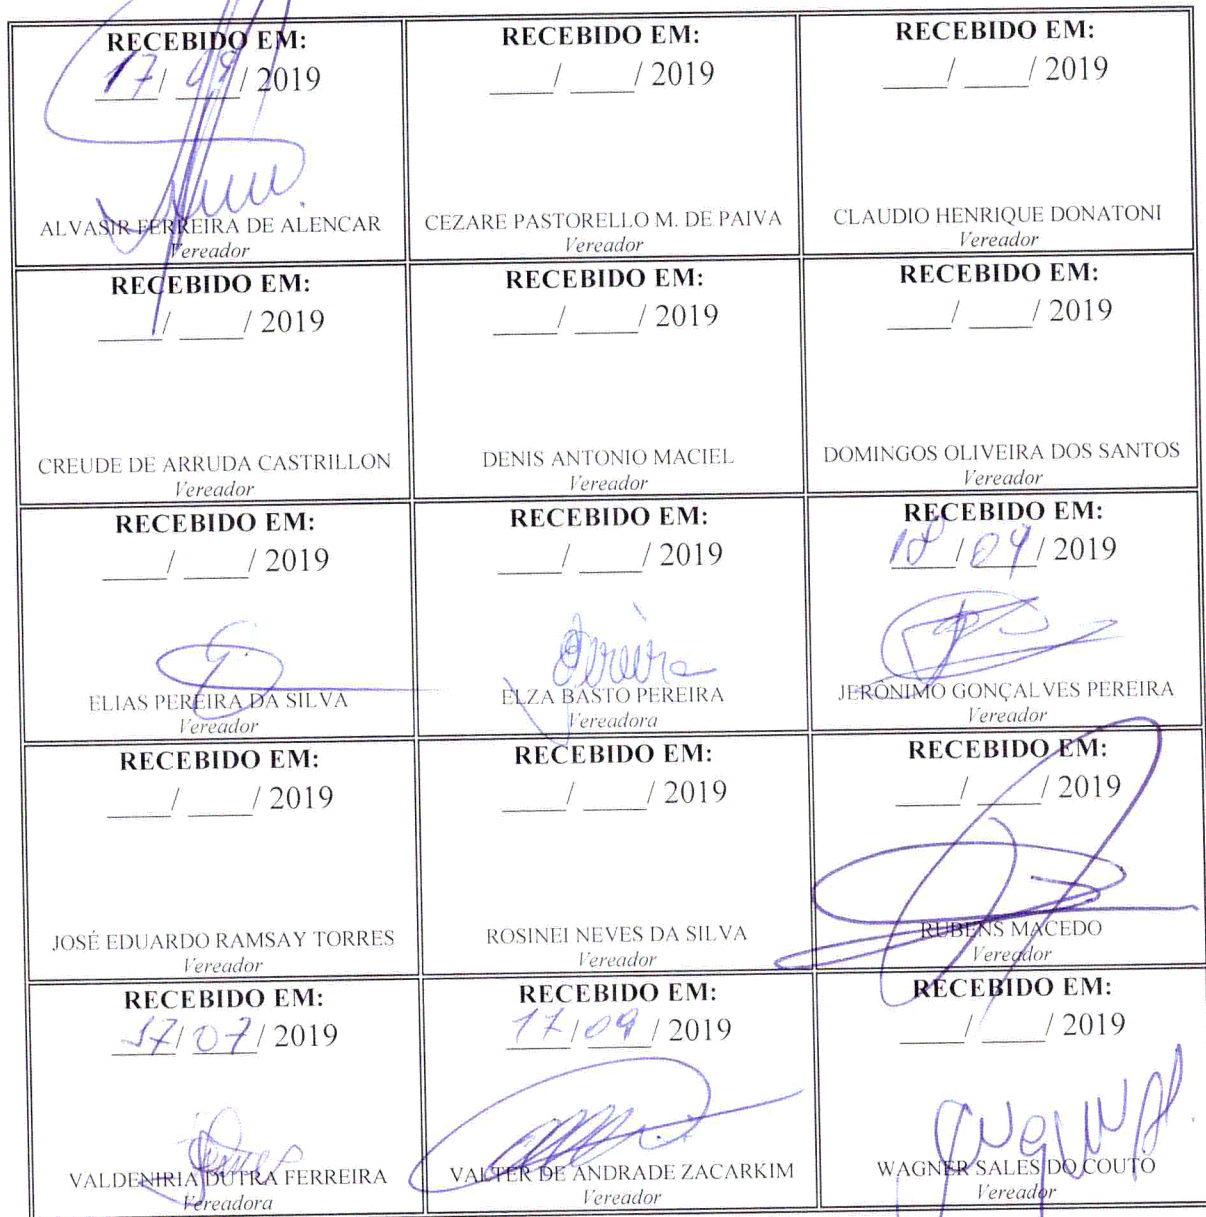 RECEBIDO EM:
17/ 09/ 2019
ALVASIR FERREIRA DE ALENCAR
Vereador
RECEBIDO EM:
____/ ____/ 2019
CEZARE PASTORELLO M. DE PAIVA
Vereador
RECEBIDO EM:
____/ ____/ 2019
CLAUDIO HENRIQUE DONATONI
Vereador
RECEBIDO EM:
____/ ____/ 2019
CREUDE DE ARRUDA CASTRILLON
Vereador
RECEBIDO EM:
____/ ____/ 2019
DENIS ANTONIO MACIEL
Vereador
RECEBIDO EM:
____/ ____/ 2019
DOMINGOS OLIVEIRA DOS SANTOS
Vereador
RECEBIDO EM:
____/ ____/ 2019
ELIAS PEREIRA DA SILVA
Vereador
RECEBIDO EM:
____/ ____/ 2019
Pereira
ELZA BASTO PEREIRA
Vereadora
RECEBIDO EM:
18/09/ 2019
JERÔNIMO GONÇALVES PEREIRA
Vereador
RECEBIDO EM:
____/ ____/ 2019
JOSÉ EDUARDO RAMSAY TORRES
Vereador
RECEBIDO EM:
____/ ____/ 2019
ROSINEI NEVES DA SILVA
Vereador
RECEBIDO EM:
____/ ____/ 2019
RUBENS MACEDO
Vereador
RECEBIDO EM:
17/ 07/ 2019
VALDENIRIA DUTRA FERREIRA
Vereadora
RECEBIDO EM:
17/09/ 2019
VALTER DE ANDRADE ZACARKIM
Vereador
RECEBIDO EM:
____/ ____/ 2019
WAGNER SALES DO COUTO
Vereador